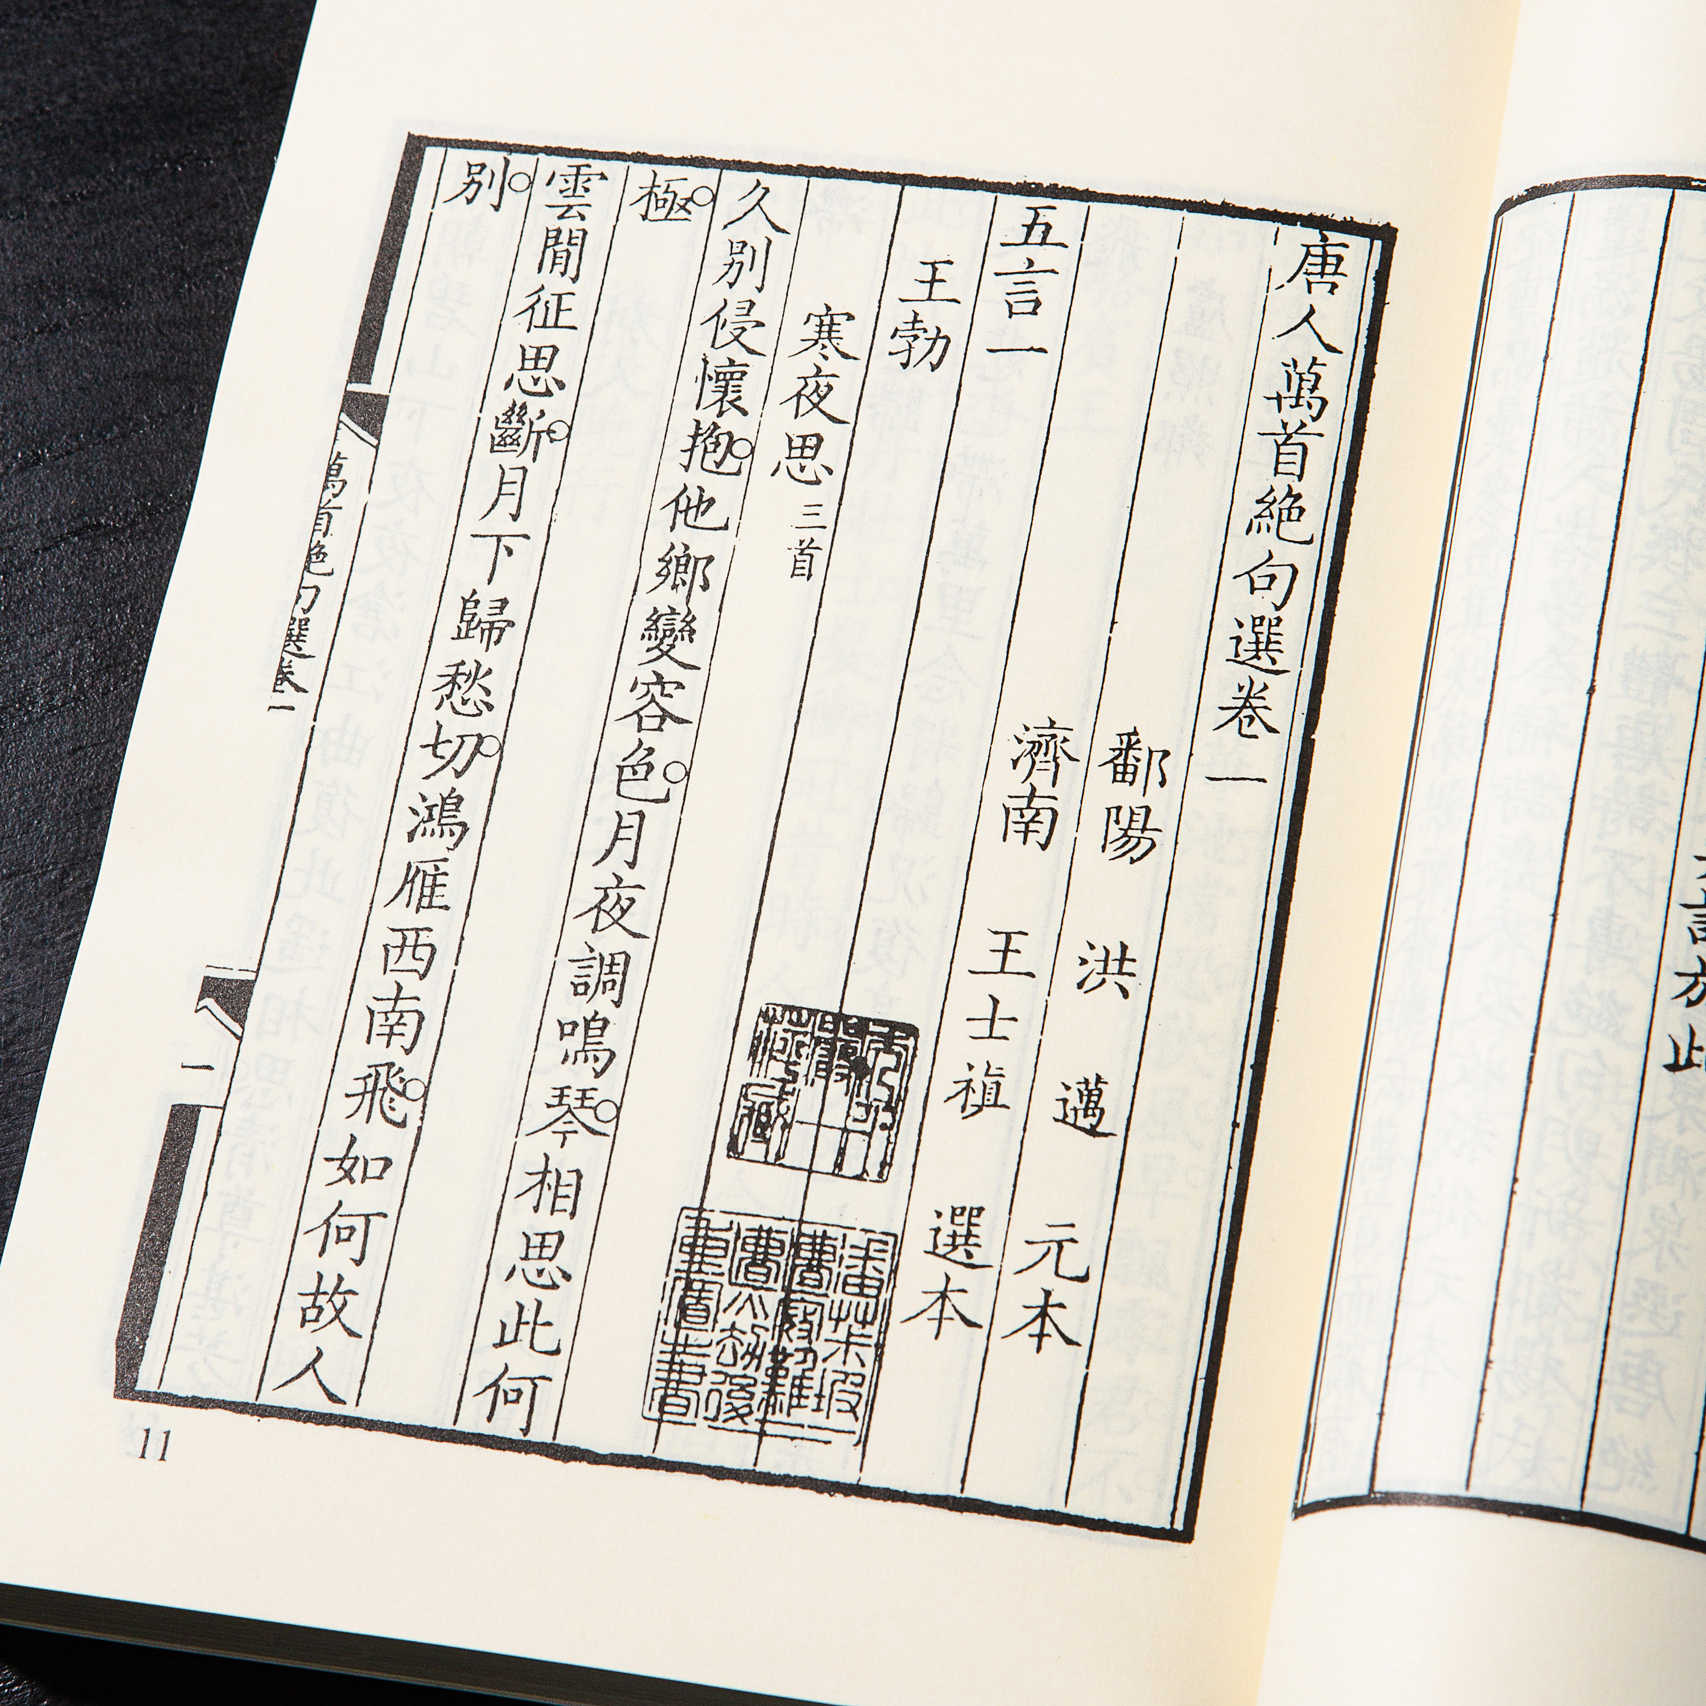 唐人萬首絶句選卷一
鄱陽 洪 邁 元本
濟南 王士禛 選本
五言一
王勃
寒夜思三首
久别侵懷抱。他鄉變容色。月夜調鳴琴。相思此何
極。
雲間征思斷。月下歸愁切。鴻雁西南飛。如何故人
别。
萬首絶句選卷一
一
11